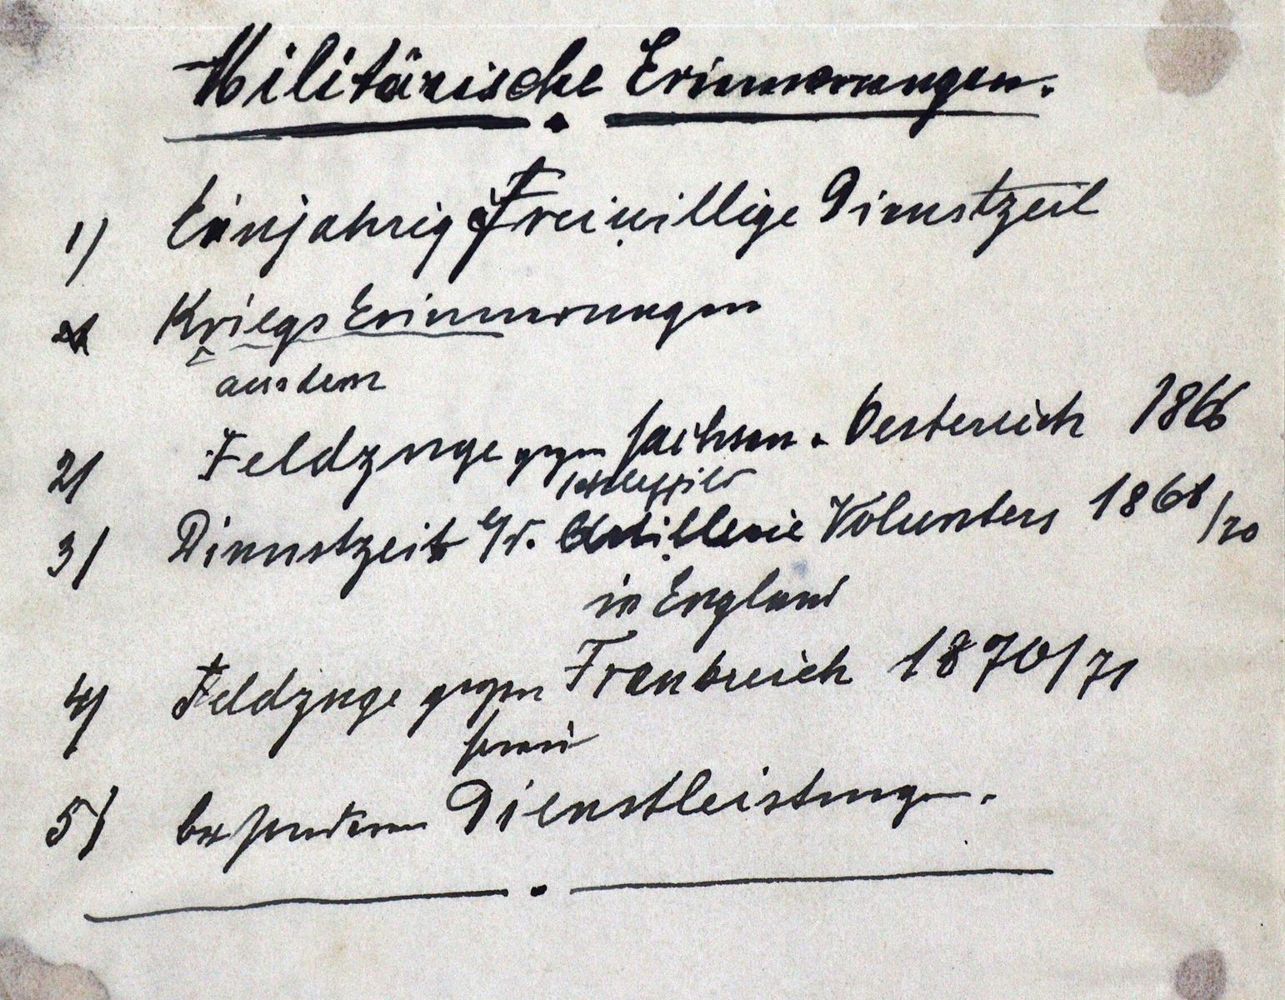 Militärische Erinnerungen.
1) Einjahrig Freiwillige Dienstzeit
Kriegs Erinnerungen
aus dem
2) Feldzuge gegen Sachsen. Oesterreich 1866
3) Dienstzeit b/d. Artillerie Volunters 1868/70
in England
4) Feldzuge gegen Frankreich 1870/71
sowie
5) besonderen Dienstleistungen.